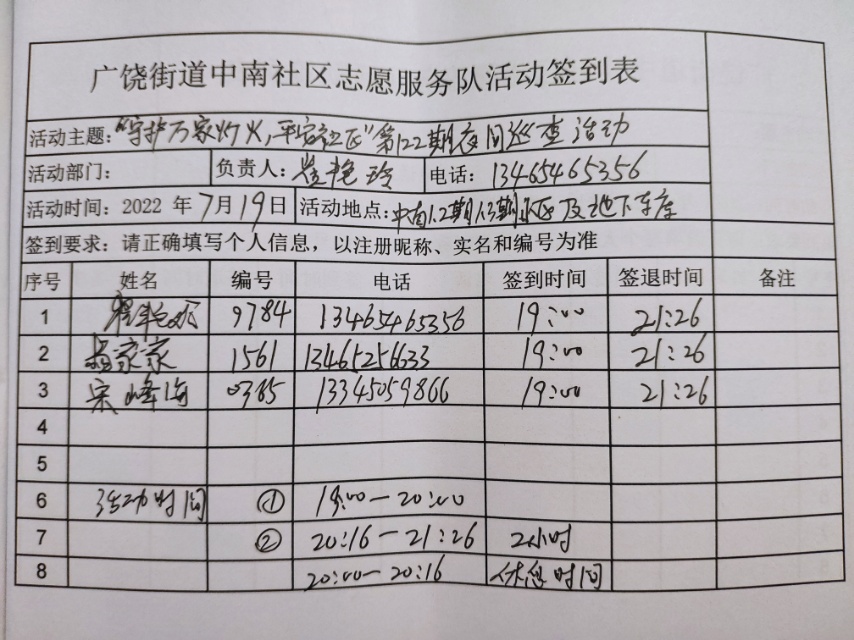 广饶街道中南社区志愿服务队活动签到表
活动主题:“守护万家灯火,平安社区”第122期夜间巡查活动
活动部门: 负责人: 艳玲 电话: 13465465356
活动时间: 2022 年 7月19日 活动地点: 中南1.2期1.3期小区及地下车库
签到要求: 请正确填写个人信息,以注册昵称、实名和编号为准
序号 姓名 编号 电话 签到时间 签退时间 备注
1 艳玲 9784 13465465356 19:00 21:26
2 家家 1561 13465256633 19:00 21:26
3 宋峰海 0385 13345059866 19:00 21:26
4
5
6 活动时间 ① 19:00—20:00
7 ② 20:16—21:26 2小时
8 20:00—20:16 休息时间